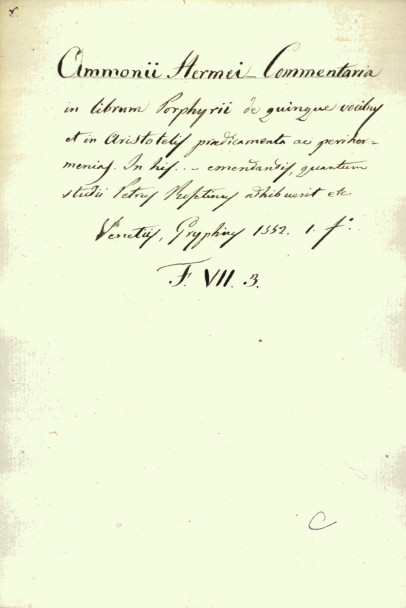 Ammonii Hermei Commentaria
in librum Porphyrii de quinque vocibus
et in Aristotelis praedicamenta ac periher=
menias. In his ... emendandis, quantum
studii Petrus Rostinus adhibuerit etc
Venetiis, Gryphius 1552. 1. fº.
F. VII. 3.
C